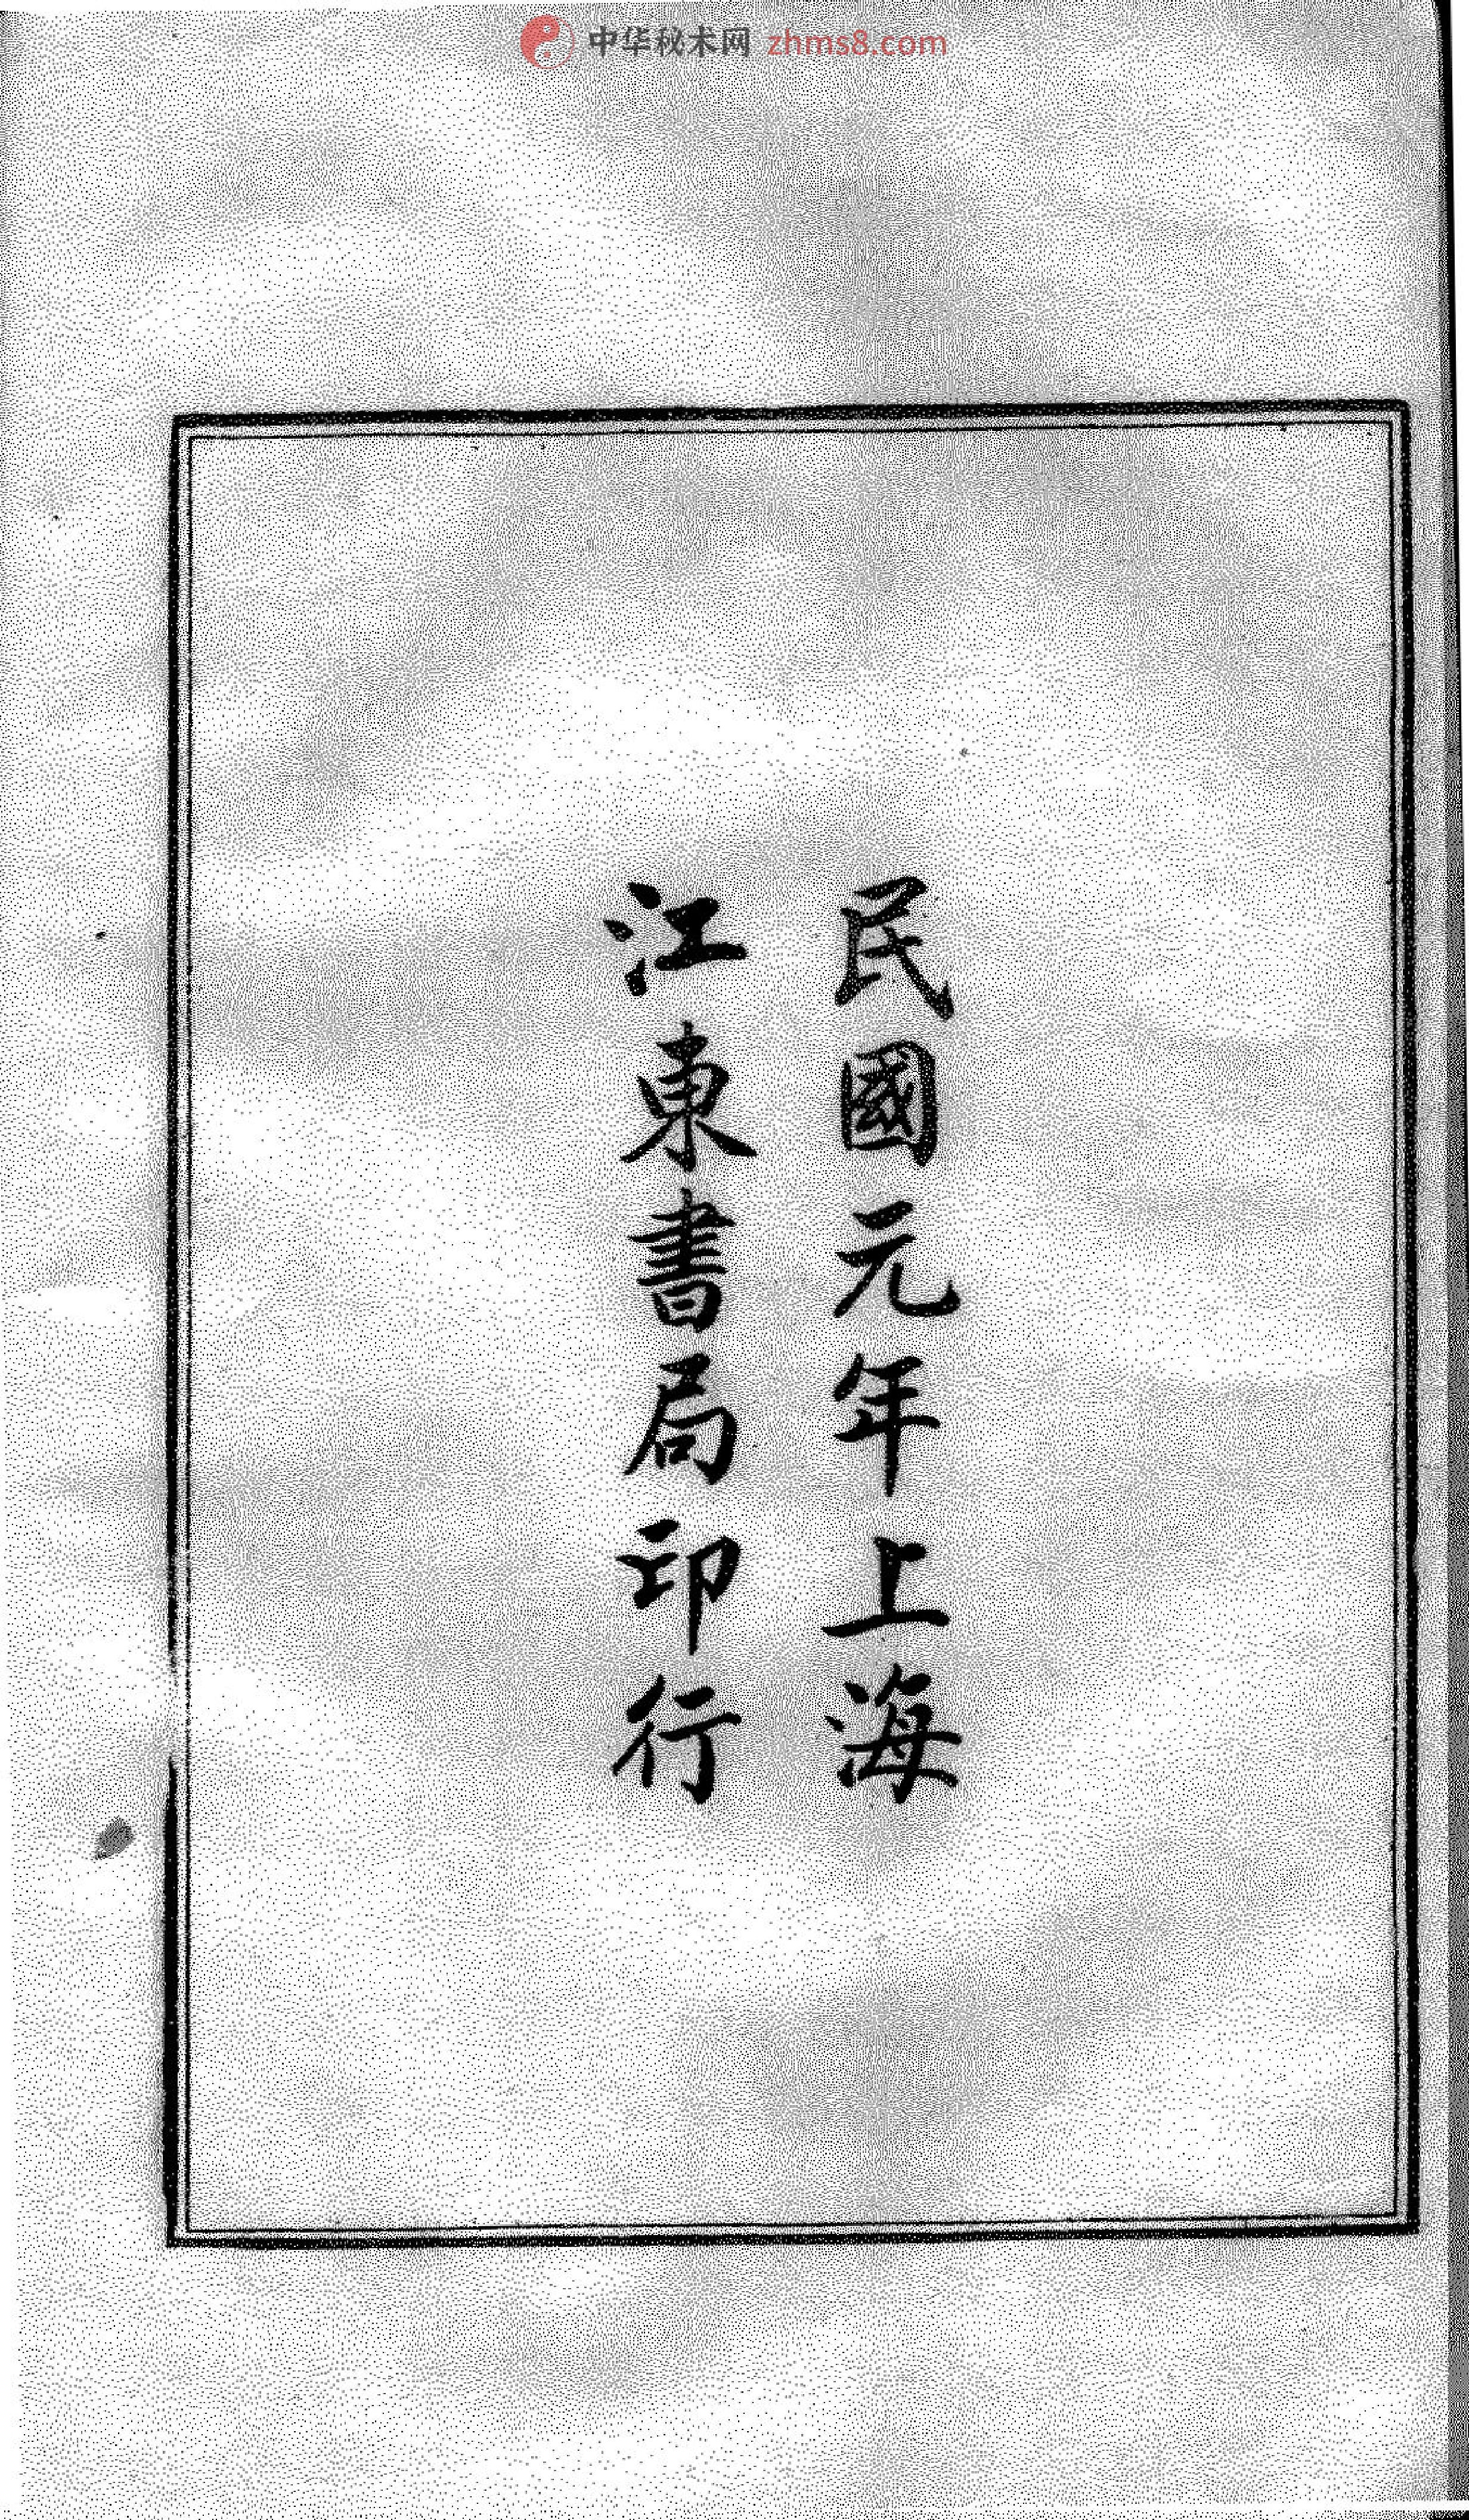 中华秘术网 zhms8.com
民國元年上海
江東書局印行